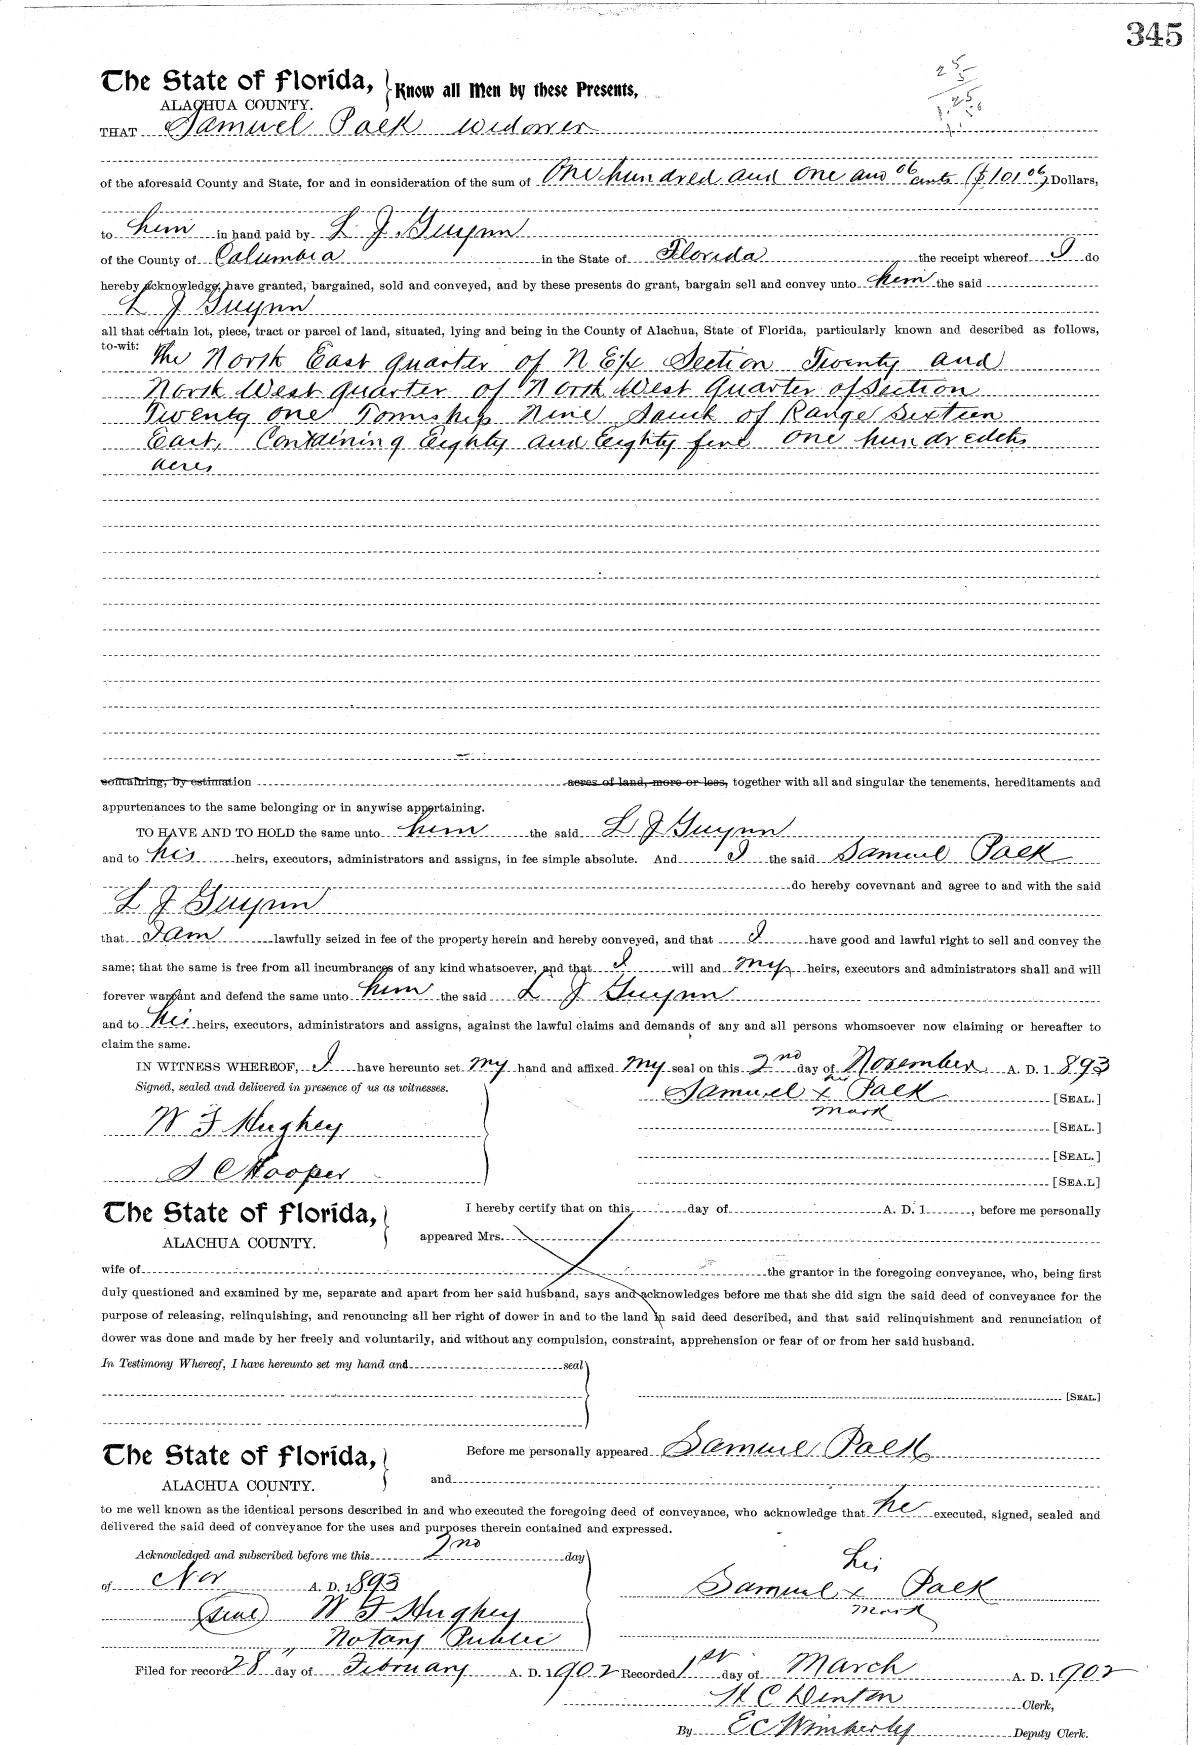 345
The State of Florida, } Know all Men by these Presents,
ALACHUA COUNTY.
THAT Samuel Polk widower
of the aforesaid County and State, for and in consideration of the sum of One hundred and one and 06 cents ($101 06) Dollars,
to him in hand paid by L J. Guynn
of the County of Columbia in the State of Florida the receipt whereof I do
hereby acknowledge, have granted, bargained, sold and conveyed, and by these presents do grant, bargain sell and convey unto him the said
L J Guynn
all that certain lot, piece, tract or parcel of land, situated, lying and being in the County of Alachua, State of Florida, particularly known and described as follows,
to-wit: The North East quarter of N E¼ Section Twenty and
North West quarter of North West Quarter of Section
Twenty one Township Nine South of Range Sixteen
East, Containing Eighty and Eighty five one hundredths
acres
containing, by estimation acres of land, more or less, together with all and singular the tenements, hereditaments and
appurtenances to the same belonging or in anywise appertaining.
TO HAVE AND TO HOLD the same unto him the said L J Guynn
and to his heirs, executors, administrators and assigns, in fee simple absolute. And I the said Samuel Polk
do hereby covevnant and agree to and with the said
L J Guynn
that I am lawfully seized in fee of the property herein and hereby conveyed, and that I have good and lawful right to sell and convey the
same; that the same is free from all incumbrances of any kind whatsoever, and that I will and my heirs, executors and administrators shall and will
forever warrant and defend the same unto him the said L J Guynn
and to his heirs, executors, administrators and assigns, against the lawful claims and demands of any and all persons whomsoever now claiming or hereafter to
claim the same.
IN WITNESS WHEREOF, I have hereunto set my hand and affixed my seal on this 2nd day of November A. D. 1893
Signed, sealed and delivered in presence of us as witnesses.
Samuel his x mark Polk [SEAL.]
W F Hughey [SEAL.]
[SEAL.]
S C Hooper [SEA.L]
The State of Florida,
ALACHUA COUNTY.
I hereby certify that on this day of A. D. 1 , before me personally
appeared Mrs.
wife of the grantor in the foregoing conveyance, who, being first
duly questioned and examined by me, separate and apart from her said husband, says and acknowledges before me that she did sign the said deed of conveyance for the
purpose of releasing, relinquishing, and renouncing all her right of dower in and to the land in said deed described, and that said relinquishment and renunciation of
dower was done and made by her freely and voluntarily, and without any compulsion, constraint, apprehension or fear of or from her said husband.
In Testimony Whereof, I have hereunto set my hand and seal
[SEAL.]
The State of Florida,
ALACHUA COUNTY.
Before me personally appeared Samuel Polk
and
to me well known as the identical persons described in and who executed the foregoing deed of conveyance, who acknowledge that he executed, signed, sealed and
delivered the said deed of conveyance for the uses and purposes therein contained and expressed.
Acknowledged and subscribed before me this 2nd day
of Nov A. D. 1893
Samuel his x mark Polk
(seal) W F Hughey
Notary Public
Filed for record 28" day of February A. D. 1902 Recorded 1st day of March A. D. 1902
H C Denton Clerk,
By E C Wimberly Deputy Clerk.